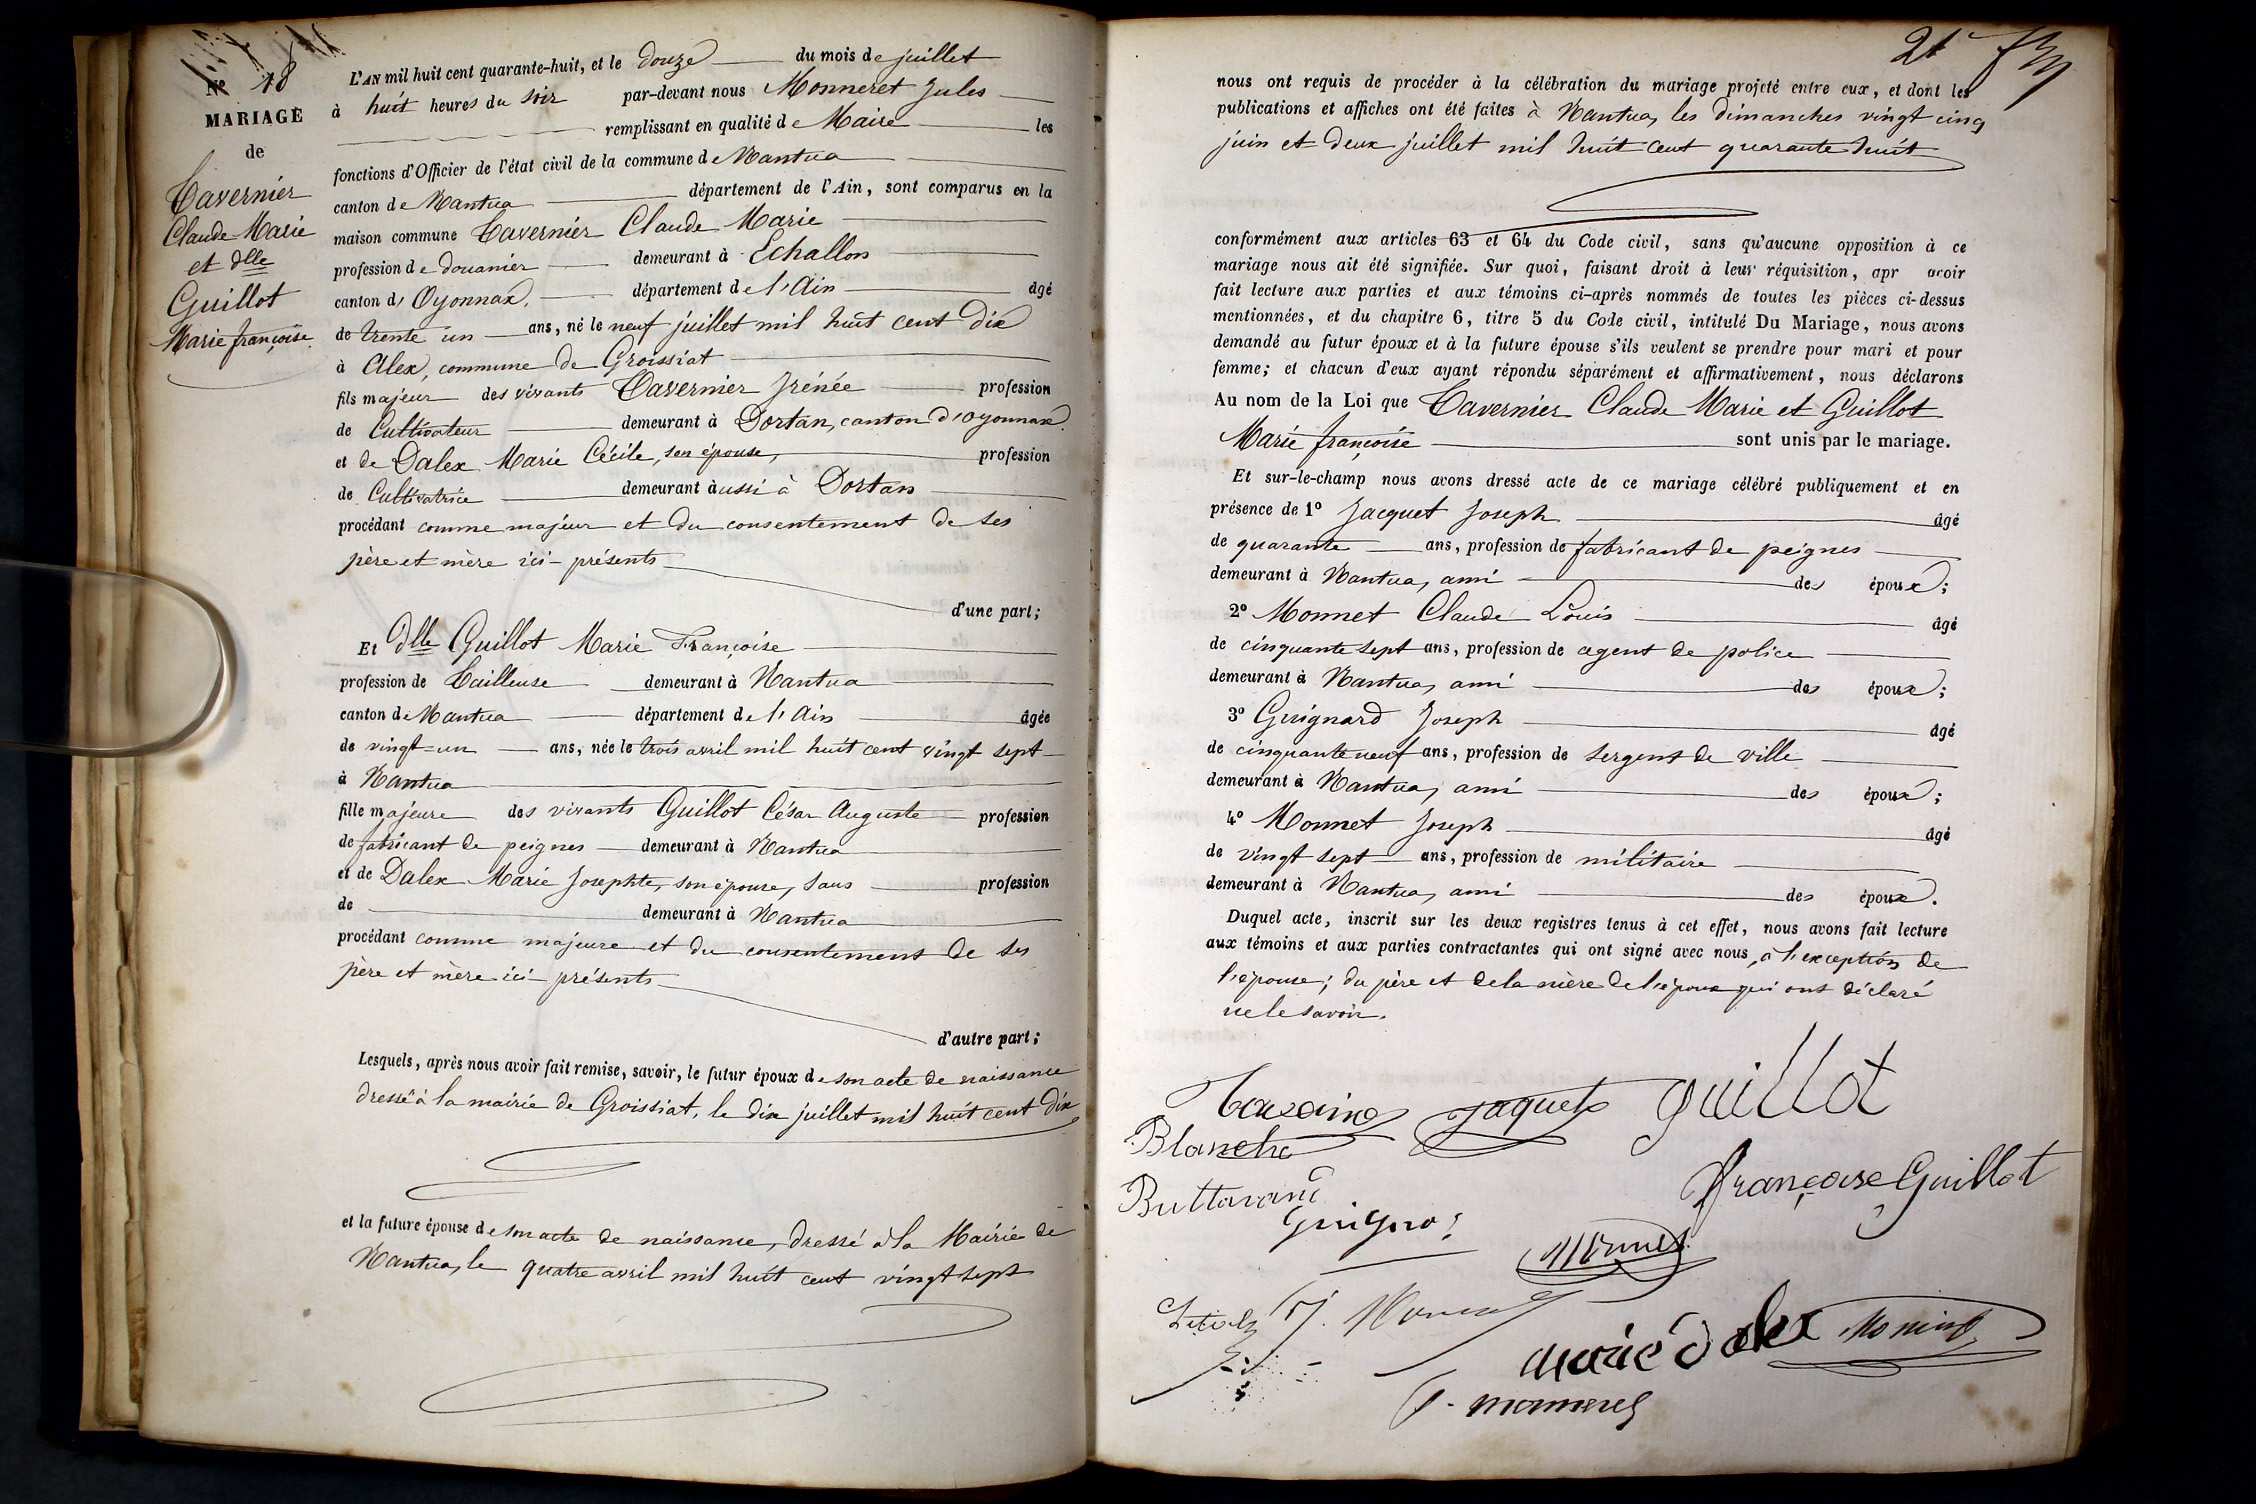 Nº 18
MARIAGE
de
Tavernier
Claude Marie
et dlle
Guillot
Marie françoise
L'AN mil huit cent quarante-huit, et le douze du mois de juillet
à huit heures du soir par-devant nous Monneret Jules
remplissant en qualité de Maire les
fonctions d'Officier de l'état civil de la commune de Nantua
canton de Nantua département de l'Ain, sont comparus en la
maison commune Tavernier Claude Marie
profession de douanier demeurant à Echallon
canton d'Oyonnax, département de l'Ain âgé
de trente un ans, né le neuf juillet mil huit cent dix
à Alex, commune de Groissiat
fils majeur des vivants Tavernier Irénée profession
de Cultivateur demeurant à Dortan, canton d'Oyonnax
et de Dalex Marie Cécile, son épouse, profession
de Cultivatrice demeurant aussi à Dortan
procédant comme majeur et du consentement de ses
père et mère ici présents
d'une part;
Et dlle Guillot Marie Françoise
profession de Tailleuse demeurant à Nantua
canton de Nantua département de l'Ain âgée
de vingt-un ans, née le trois avril mil huit cent vingt sept
à Nantua
fille majeure des vivants Guillot César Auguste profession
de fabricant de peignes demeurant à Nantua
et de Dalex Marie Josephte, son épouse, sans profession
de demeurant à Nantua
procédant comme majeure et du consentement de ses
père et mère ici présents
d'autre part;
Lesquels, après nous avoir fait remise, savoir, le futur époux de son acte de naissance
dressé à la mairie de Groissiat, le dix juillet mil huit cent dix
et la future épouse de son acte de naissance, dressé à la Mairie de
Nantua, le quatre avril mil huit cent vingt sept
21
nous ont requis de procéder à la célébration du mariage projeté entre eux, et dont les
publications et affiches ont été faites à Nantua, les dimanches vingt cinq
juin et deux juillet mil huit cent quarante huit
conformément aux articles 63 et 64 du Code civil, sans qu'aucune opposition à ce
mariage nous ait été signifiée. Sur quoi, faisant droit à leur réquisition, apr avoir
fait lecture aux parties et aux témoins ci-après nommés de toutes les pièces ci-dessus
mentionnées, et du chapitre 6, titre 5 du Code civil, intitulé Du Mariage, nous avons
demandé au futur époux et à la future épouse s'ils veulent se prendre pour mari et pour
femme; et chacun d'eux ayant répondu séparément et affirmativement, nous déclarons
Au nom de la Loi que Tavernier Claude Marie et Guillot
Marie françoise sont unis par le mariage.
Et sur-le-champ nous avons dressé acte de ce mariage célébré publiquement et en
présence de 1º Jacquet Joseph âgé
de quarante ans, profession de fabricant de peignes
demeurant à Nantua, ami des époux;
2º Monnet Claude Louis âgé
de cinquante sept ans, profession de agent de police
demeurant à Nantua, ami des époux;
3º Guignard Joseph âgé
de cinquante neuf ans, profession de sergent de ville
demeurant à Nantua, ami des époux;
4º Monnet Joseph âgé
de vingt sept ans, profession de militaire
demeurant à Nantua, ami des époux.
Duquel acte, inscrit sur les deux registres tenus à cet effet, nous avons fait lecture
aux témoins et aux parties contractantes qui ont signé avec nous, à l'exception de
l'épouse; du père et de la mère de l'époux qui ont déclaré
ne le savoir.
jaquet guillot
Blanche
françoise Guillot
marie dalex